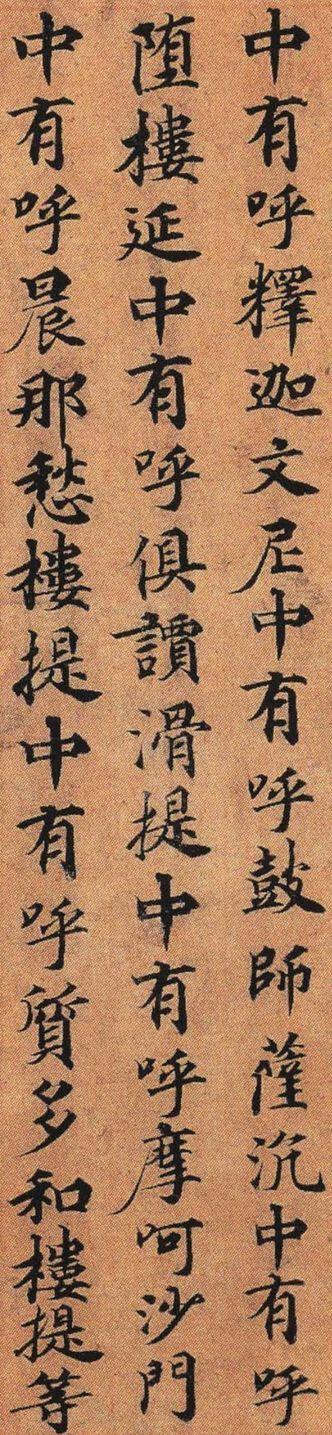 中有呼釋迦文尼中有呼鼓師薩沉中有呼
墮樓延中有呼俱譚滑提中有呼摩呵沙門
中有呼晨那愁樓提中有呼質多和樓提等